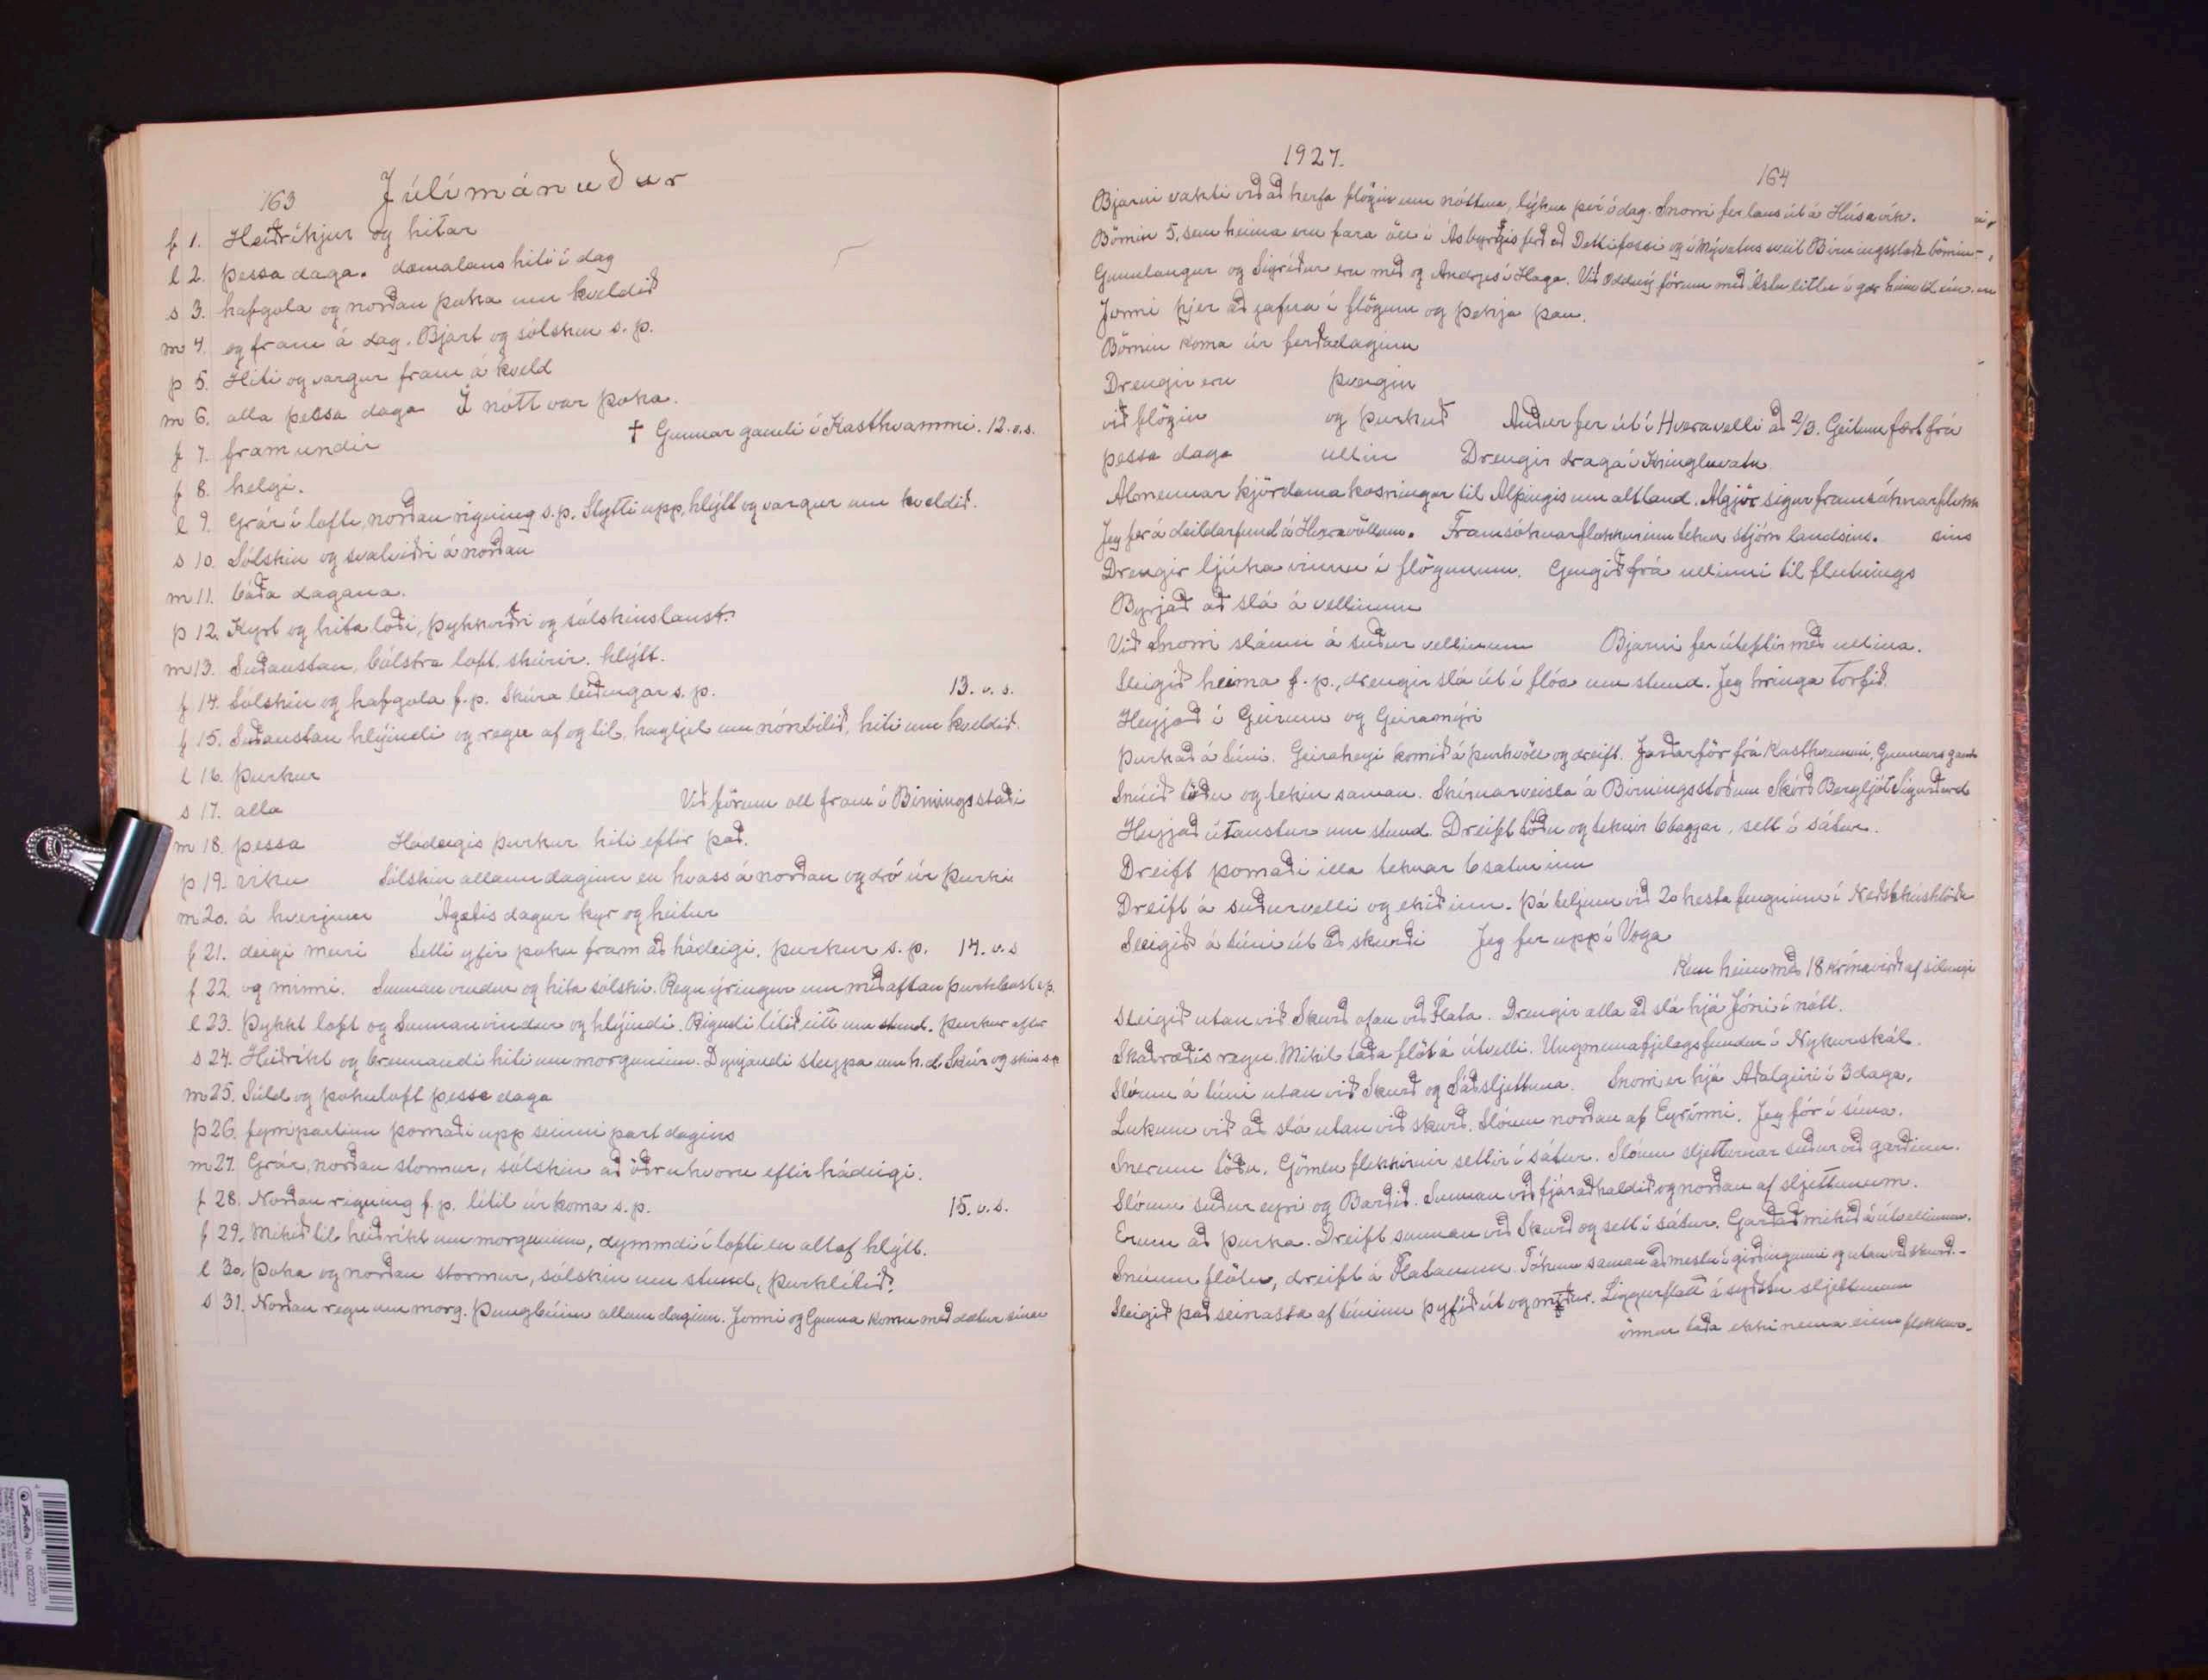 163 Júlímánuður
f 1. Heiðríkjur og hitar
l 2. þessa daga. dæmalaus hiti í dag
s 3. hafgola og norðan þoka um kveldið
m 4. og fram á dag. Bjart og sólskin s.p.
þ 5. Hiti og vargur fram á kveld
m 6. alla þessa daga Í nótt var þoka.
f 7. fram undir † Gunnar gamli í Kasthvammi. 12.v.s.
f 8. helgi.
l 9. Grár í lofti, norðan rigning s.p. Stytti upp, hlýtt og vargur um kveldið.
s 10. Sólskin og svalviðri á norðan
m 11. báða dagana.
þ 12. Kyrt og hita loði, þykkviðri og sólskinslaust.
m 13. Suðaustan, bólstra loft, skúrir. hlýtt.
f 14. Sólskin og hafgola f.p. Skúra leiðingar s.p. 13. v. s.
f 15. Suðaustan hlýindi og regn af og til, hagljel um nónbilið, hiti um kveldið.
l 16. þurkur
s 17. alla Við förum öll fram í Birningsstaði
m 18. þessa Hádegis þurkur hiti eftir það.
þ 19. viku Sólskin allann daginn en hvass á norðan og dró úr þurki
m 20. á hverjum Ágætis dagur kyr og heitur
f 21. degi meiri Setti yfir þoku fram að hádegi, þurkur s.p. 14. v.s
f 22. og minni. Sunnan vindur og hita sólskin. Regn ýringur um miðaftan þurklaust s.p.
l 23. Þykkt loft og Sunnanvindur og hlýindi. Rigndi lítið eitt um stund. þurkur eftir
s 24. Heiðríkt og brennandi hiti um morguninn. Dynjandi steypa um h.d. Skúr og skin s.p.
m 25. Súld og þokuloft þessa daga
þ 26. fyrripartinn þornaði upp seinni part dagins
m 27. Grár, norðan stormur, sólskin að öðruhvoru eftir hádegi.
f 28. Norðan rigning f.p. lítil úrkoma s.p. 15. v. s.
f 29. Mikið til heiðríkt um morguninn, dymmdi í lofti en altaf hlýtt.
l 30. Þoka og norðan stormur, sólskin um stund, þurklítið.
s 31. Norðan regn um morg. Þungbúinn allann daginn. Jonni og Gunna komu með dætur sínar
1927. 164
Bjarni vakti við að herfa flögin um nóttina, lýkur því í dag. Snorri fer laus út á Húsavík.
Börnin 5, sem heima eru fara öll í Ásbyrgisferð að Dettifossi og í Mývatnssveit Birningsstað börnin
Gunnlaugur og Sigríður eru með og Andrjes í Haga. Við Oddný fórum með Ástu litlu í gær heim til sín.
Jonni hjer að jafna í flögum og þekja þau.
Börnin koma úr ferðalaginu
Drengir eru þvegin
við flögin og þurkuð Auður fer út í Hveravelli að 2/3. Geitum fært frá
þessa daga ullin Drengir draga í Kringluvatn
Almennar kjördæma kosningar til Alþingis um alt land. Algjör sigur framsóknarflokk
Jeg fer á deildarfund á Hveravöllum. Framsóknarflokkurinn tekur stjórn landsins. sins
Drengir ljúka vinnu í flögunum. Gengið frá ullinni til flutnings
Byrjað að slá á vellinum
Við Snorri sláum á suður vellinum Bjarni fer úteftir með ullina.
Slegið heima f.p., drengir slá út í flóa um stund. Jeg hringa torfið.
Heyjað í Geirum og Geiramýri
Þurkað á túni. Geiraheyi komið á þurkvöll og dreift. Jarðarför frá Kasthvammi, Gunnars gamla
Snúið töðu og tekin saman. Skírnarveisla á Birningsstöðum Skírð Bergljót Sigurðard
Heyjað útaustur um stund. Dreift töðu og teknir 6 baggar, sett í sátur.
Dreift þornaði illa teknar 6 satur inn
Dreift á suðurvelli og ekið inn. Þá teljum við 20 hesta fengna inn í Neðstahúshlöðu
Slegið á túni út að skurði Jeg fer upp í Voga
Kem heim með 18 króna virði af silungi
Slegið utan við Skurð ofan við Flata. Drengir alla að slá hjá Jóni í nótt.
Skaðræðis regn. Mikil taða flöt á útvelli. Ungmennafjelagsfundur í Nykurskál.
Sláum á túni utan við Skurð og Sáðsljettuna. Snorri er hjá Aðalgeiri í 3 daga.
Lukum við að slá utan við skurð. Slóum norðan af Eyrinni. Jeg fór í síma.
Snerum töðu. Gömlu flekkirnir settir í sátur. Slóum sljetturnar suður við garðinn.
Slóum suður eyri og Barðið. Sunnan við fjáraðhaldið og norðan af sljettunum.
Erum að þurka. Dreift sunnan við Skurð og sett í sátur. Garðað mikið á útvellinum.
Snúum flötu, dreift á Flatanum. Tókum saman að mestu í girðingunni og utan við skurð.-
Slegið það seinasta af túninu þyfið út og niður. Liggur flatt á syðstu sljettunum
önnur taða ekki nema einn flekkur.